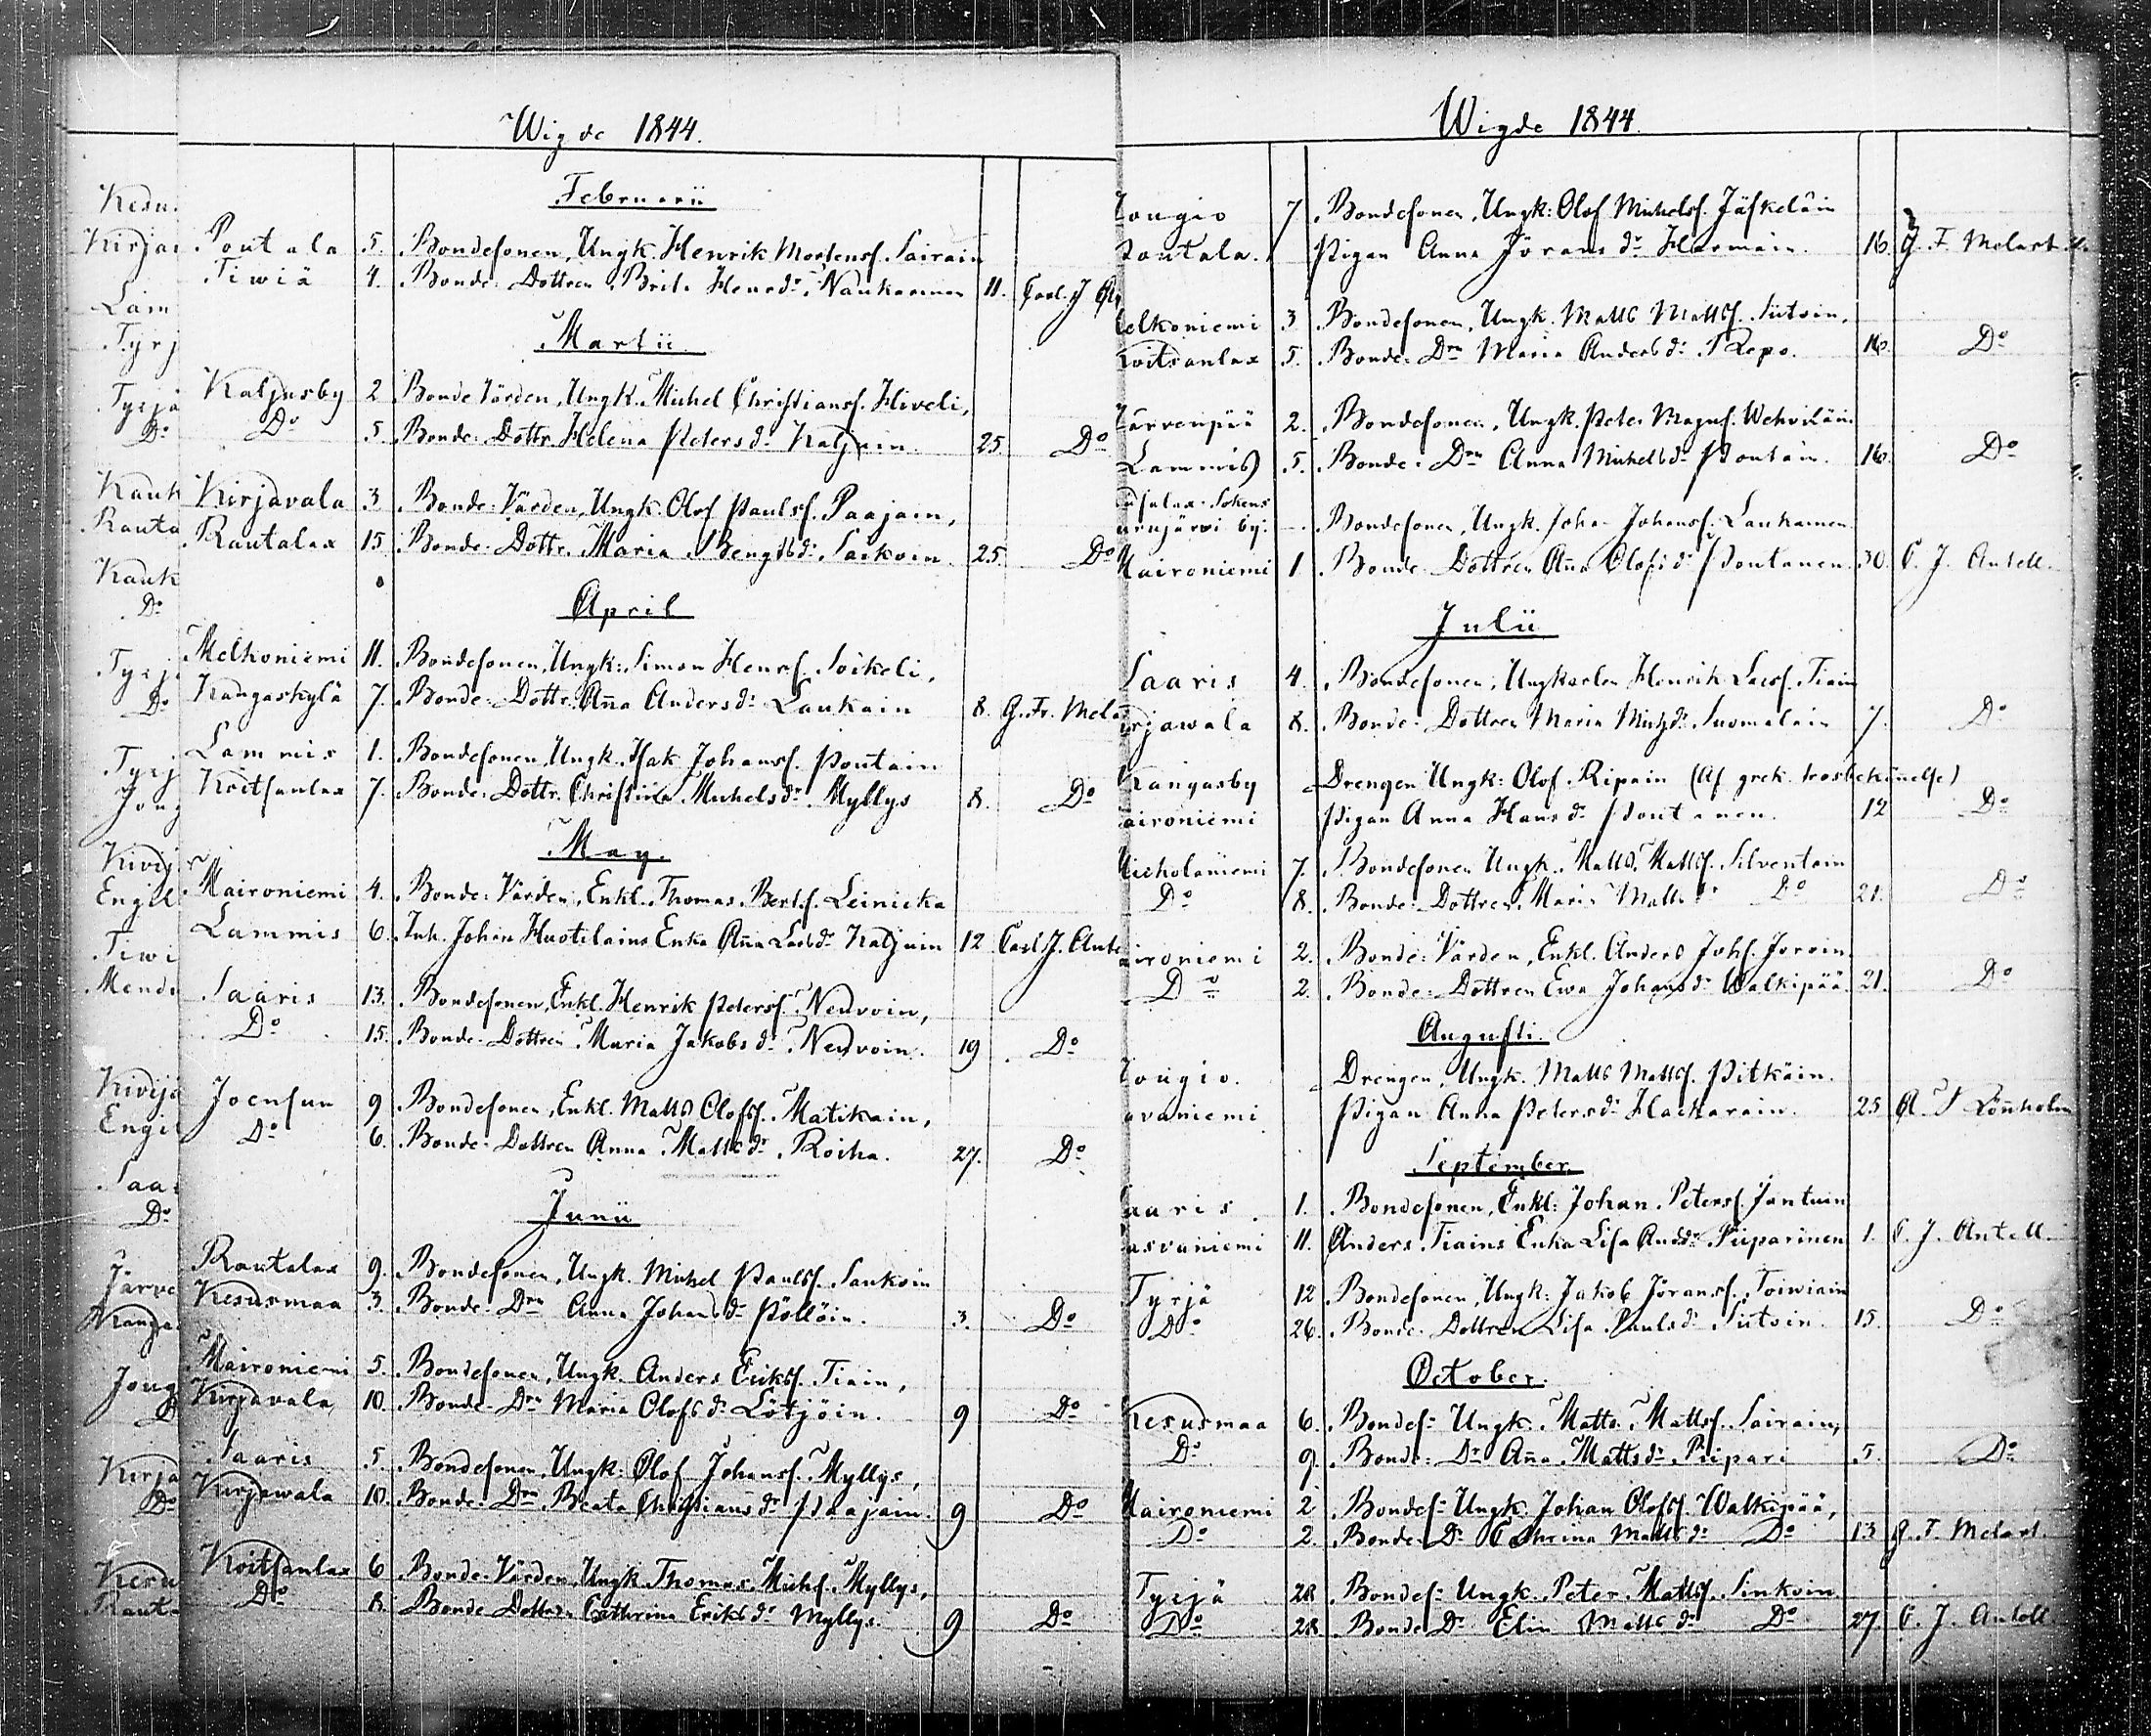 Wigde 1844.
Februarii
Poutala 5. Bondesonen, Ungk. Henrik Mortensf. Sairain
Tiwiä 4. Bonde-Dottren Brita Henrsdr Naukarinen 11. Carl J
Martii.
Katjusby 2 Bonde Värden, Ungk. Michel Christiansf. Hiveli,
Do 5 Bonde-Dottr. Helena Petersdr Katjain. 25 Do
Kirjavala 3 Bonde-Värden, Ungk. Olof Paulsf. Paajain,
Rautalax 15 Bonde-Dottr. Maria Bengtsdr Saikoin. 25. Do
April
Melkoniemi 11. Bondesonen, Ungk: Simon Henrsf. Soikeli,
Kangaskylä 7. Bonde-Dottr. Aña Andersdr Laukain 8. G. Fr. Mela
Lammis 1. Bondesonen, Ungk. Isak Johansf. Poutain
Koitsanlax 7. Bonde-Dottr. Christina Michelsdr Myllys 8. Do
May.
Maironiemi 4. Bonde-Värden, Enkl. Thomas Bertsf. Leinicka
Lammis 6. Inh. Johan Huotilains Enka Aña Larsdr Katjain 12 Carl J. Ante
Saaris 13. Bondesonen, Enkl. Henrik Petersf. Neuvoin,
Do 15. Bonde-Dottren Maria Jakobsdr Neuvoin. 19 Do
Joensuu 9 Bondesonen, Enkl. Matts Olofsf. Matikain,
Do 6. Bonde-Dottren Anna Mattsdr Roiha. 27. Do
Junii
Rautalax 9. Bondesonen, Ungk. Michel Paulsf. Saukoin
Kesusmaa 3. Bonde-Drn Anna Johansdr Pöllöin. 3. Do
Maironiemi 5. Bondesonen, Ungk. Anders Eriksf. Tiain,
Kirjavala 10. Bonde-Drn Maria Olofsdr Lötjöin. 9 Do
Saaris 5 Bondesonen, Ungk: Olof Johansf. Myllys,
Kirjawala 10. Bonde-Drn Beata Christiansdr Paajain. 9 Do
Koitsanlax 6 Bonde-Värden, Ungk. Thomas Michf. Myllys,
Do 8. Bonde Dottren Cathrina Eriksdr Myllys. 9 Do
Wigde 1844.
ougio 7 Bondesonen, Ungk: Olof Michelsf. Jäskeläin
outala. Pigan Anna Jöransdr Harmain. 16. G. F. Melart
elkoniemi 3 Bondesonen, Ungk. Matts Mattsf. Siitoin,
oitsanlax 5. Bonde-Drn Maria Andersdr Repo. 16. Do
ärvenpää 2. Bondesonen, Ungk. Peter Magnsf. Wehviläin
Lammis 5. Bonde-Drn Anna Michelsdr Poutain. 16. Do
Sokens
järvi by. Bondesonen, Ungk. Johan Johansf. Laukanen
Maironiemi 1 Bonde-Dottren Aña Olofsdr Poutanen. 30. C. J. Antell.
Julii
Saaris 4. Bondesonen, Ungkarlen Henrik Larsf. Tiain
rjawala 8. Bonde-Dottren Maria Michsdr Suomalain 7. Do
Kangasby Drengen Ungk: Olof Ripain (Af grek. trosbekännelse)
aironiemi Pigan Anna Hansdr Poutanen. 12 Do
icholaniemi 7. Bondesonen Ungk. Matts Mattsf. Silventoin
Do 8. Bonde-Dottren Maria Mattsdr Do 21. Do
ironiemi 2. Bonde-Värden, Enkl. Anders Johsf. Joroin
Do 2. Bonde-Dottren Ewa Johansdr Walkipää. 21. Do
Augusti.
ougio. Drengen, Ungk. Matts Mattsf. Pitkäin.
vaniemi Pigan Anna Petersdr Hackarain. 25 Lönnholm
September
aaris 1. Bondesonen, Enkl: Johan Petersf. Jantuin
asvaniemi 11. Anders Tiains Enka Lisa Andsdr Piiparinen 1. C. J. Antell.
Tyrjä 12 Bondesonen, Ungk: Jakob Jöransf. Toiwiain
Do 26. Bonde-Dottren Lisa Paulsdr Siitoin. 15. Do
October.
Kesusmaa 6. Bondes: Ungk. Matts Mattsf. Sairain,
Do 9. Bonde-Dr Aña Mattsdr Piipari 5. Do
Maironiemi 2 Bondes: Ungk. Johan Olofsf. Walkipää,
Do 2. Bonde-Dr Cathrina Mattsdr Do 13 G. F. Melart.
Tyrjä 28 Bondes: Ungk. Peter Mattsf. Sinkoin
Do 28 Bonde Dr Elin Mattsdr Do 27. C. J. Antell